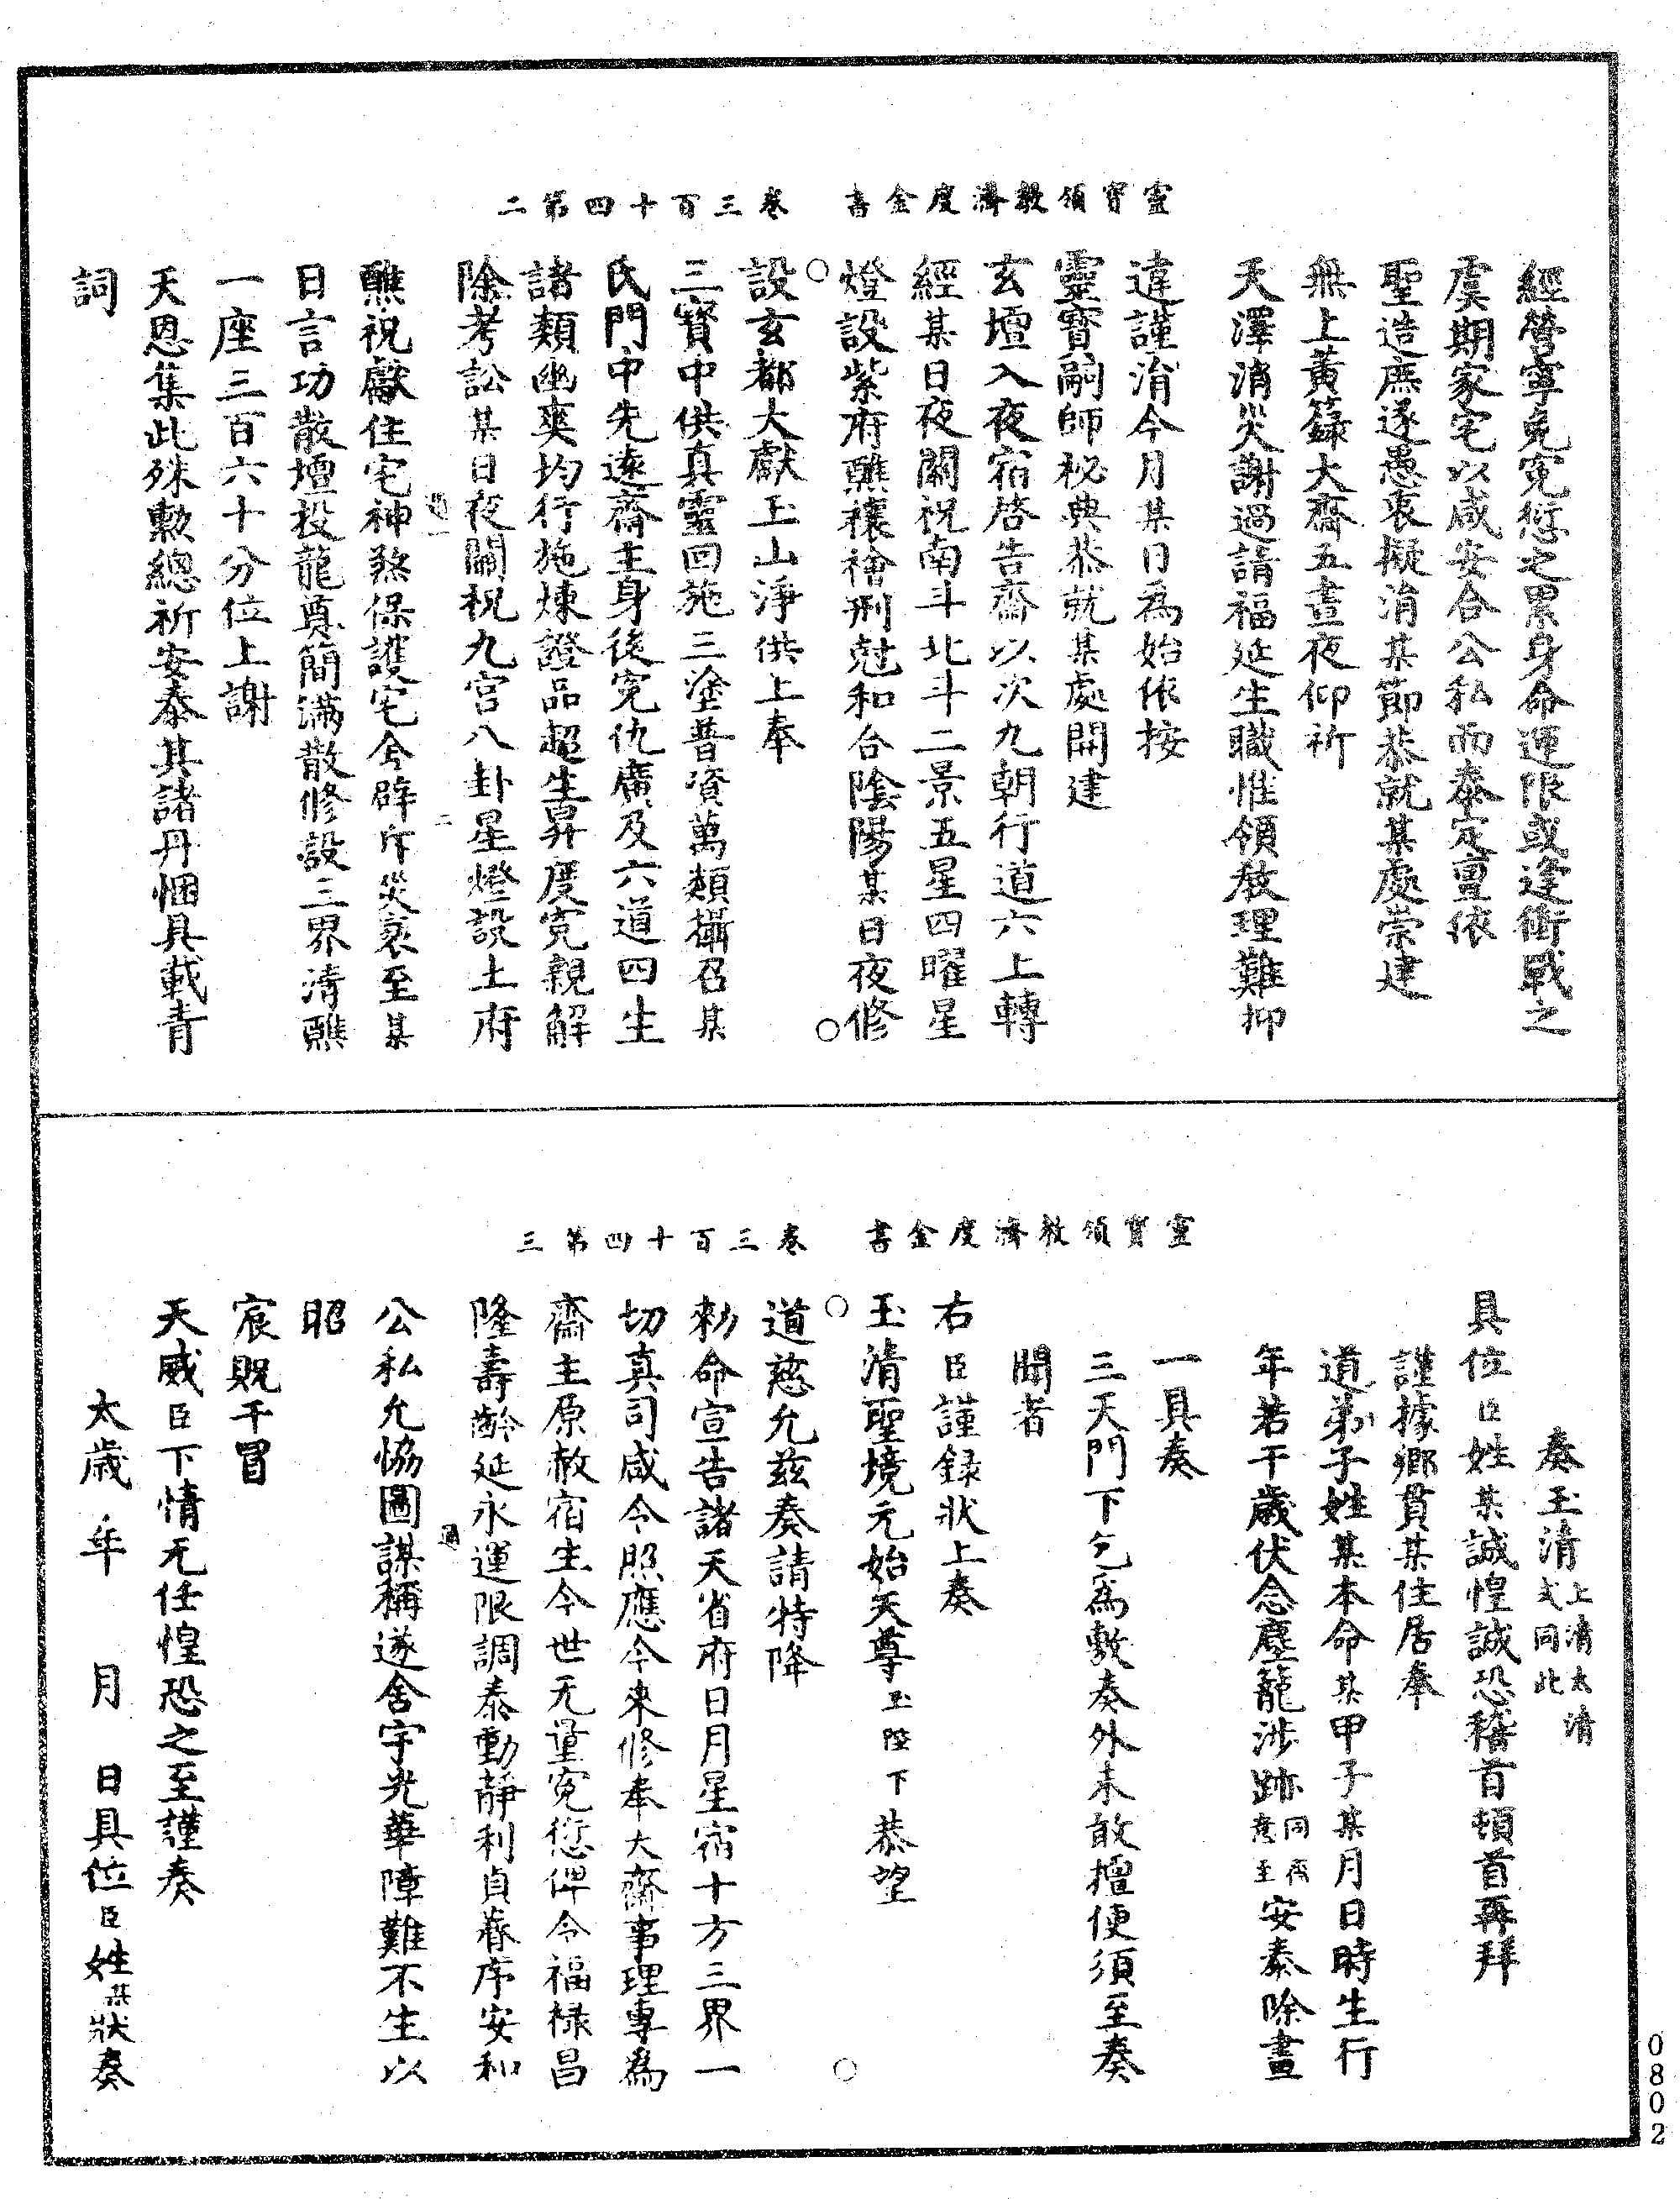 靈寶領教濟度金書 卷三百十四第二
經營寧免冤愆之累身命運限或逢衝戰之
虞期家宅以咸安合公私而泰定亶依
聖造庶遂愚衷擬消某節恭就某處崇建
無上黃籙大齋五晝夜仰祈
天澤消災謝過請福延生職惟領教理難抑
違謹涓今月某日為始依按
靈寶嗣師秘典恭就某處開建
玄壇入夜宿啓告齋以次九朝行道六上轉
經某日夜關祝南斗北斗二景五星四曜星
燈設紫府醮禳禬刑尅和合陰陽某日夜修
設玄都大獻玉山淨供上奉
三寳中供真靈回施三塗普資萬類攝召某
氏門中先遠齋主身後冤仇廣及六道四生
諸類幽爽均行施煉證品超生昇度冤親解
除考訟某日夜關祝九宮八卦星燈設土府
醮祝獻住宅神煞保護宅舍辟斥災衰至某
日言功散壇投龍奠簡滿散修設三界清醮
一座三百六十分位上謝
天恩集此殊勲總祈安泰其諸丹悃具載青
詞
靈寶領教濟度金書 卷三百十四第三
奏玉清上清太清文同此
具位臣姓某誠惶誠恐稽首頓首再拜
謹據鄉貫某住居奉
道弟子姓某本命某甲子某月日時生行
年若干歲伏念塵籠涉跡同齋意至安泰除晝
一具奏
三天門下乞為敷奏外未敢擅便須至奏
聞者
右臣謹録狀上奏
玉清聖境元始天尊玉陛下恭望
道慈允兹奏請特降
勑命宣告諸天省府日月星宿十方三界一
切真司咸令照應今來修奉大齋事理專為
齋主原赦宿生今世无量冤愆俾令福禄昌
隆壽齡延永運限調泰動靜利貞春序安和
公私允恊圖謀稱遂舍宇光華障難不生以
昭
宸貺干冒
天威臣下情无任惶恐之至謹奏
太歲 年 月 日具位臣姓某狀奏
0802